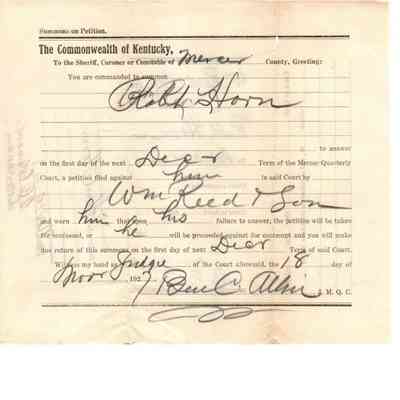 Summons on Petition.
The Commonwealth of Kentucky,
To the Sheriff, Coroner or Constable of Mercer County, Greeting:
You are commanded to summon
Robt Horn
to answer
on the first day of the next Decr Term of the Mercer Quarterly
Court, a petition filed against him in said Court by
Wm Reed & Son
and warn him that upon his failure to answer, the petition will be taken
for confessed, or he will be proceeded against for contempt and you will make
due return of this summons on the first day of next Decr Term of said Court.
Witness my hand as Judge of the Court aforesaid, the 18 day of
Novr 1927 Ben C. Allin J. M. Q. C.